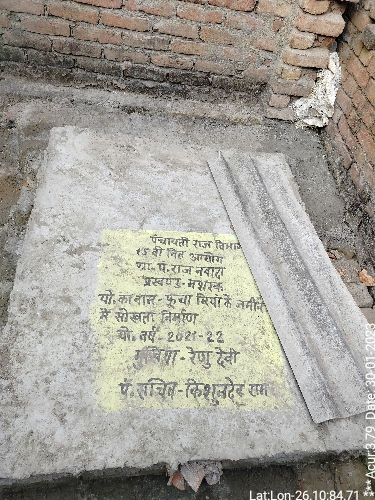 पंचायती राज विभाग
15 वी वित आयोग
ग्रा. पं. राज नवादा
प्रखण्ड - मशरक
यो. का नाम - फूचा मियां के जमीन
में सोखता निर्माण
यो. वर्ष - 2021-22
मुखिया - रेणु देवी
पं. सचिव - किशुनदेव राम
Lat:Lon-26.10:84.71 **
**Acur:3.79 Date: 30.01.2023